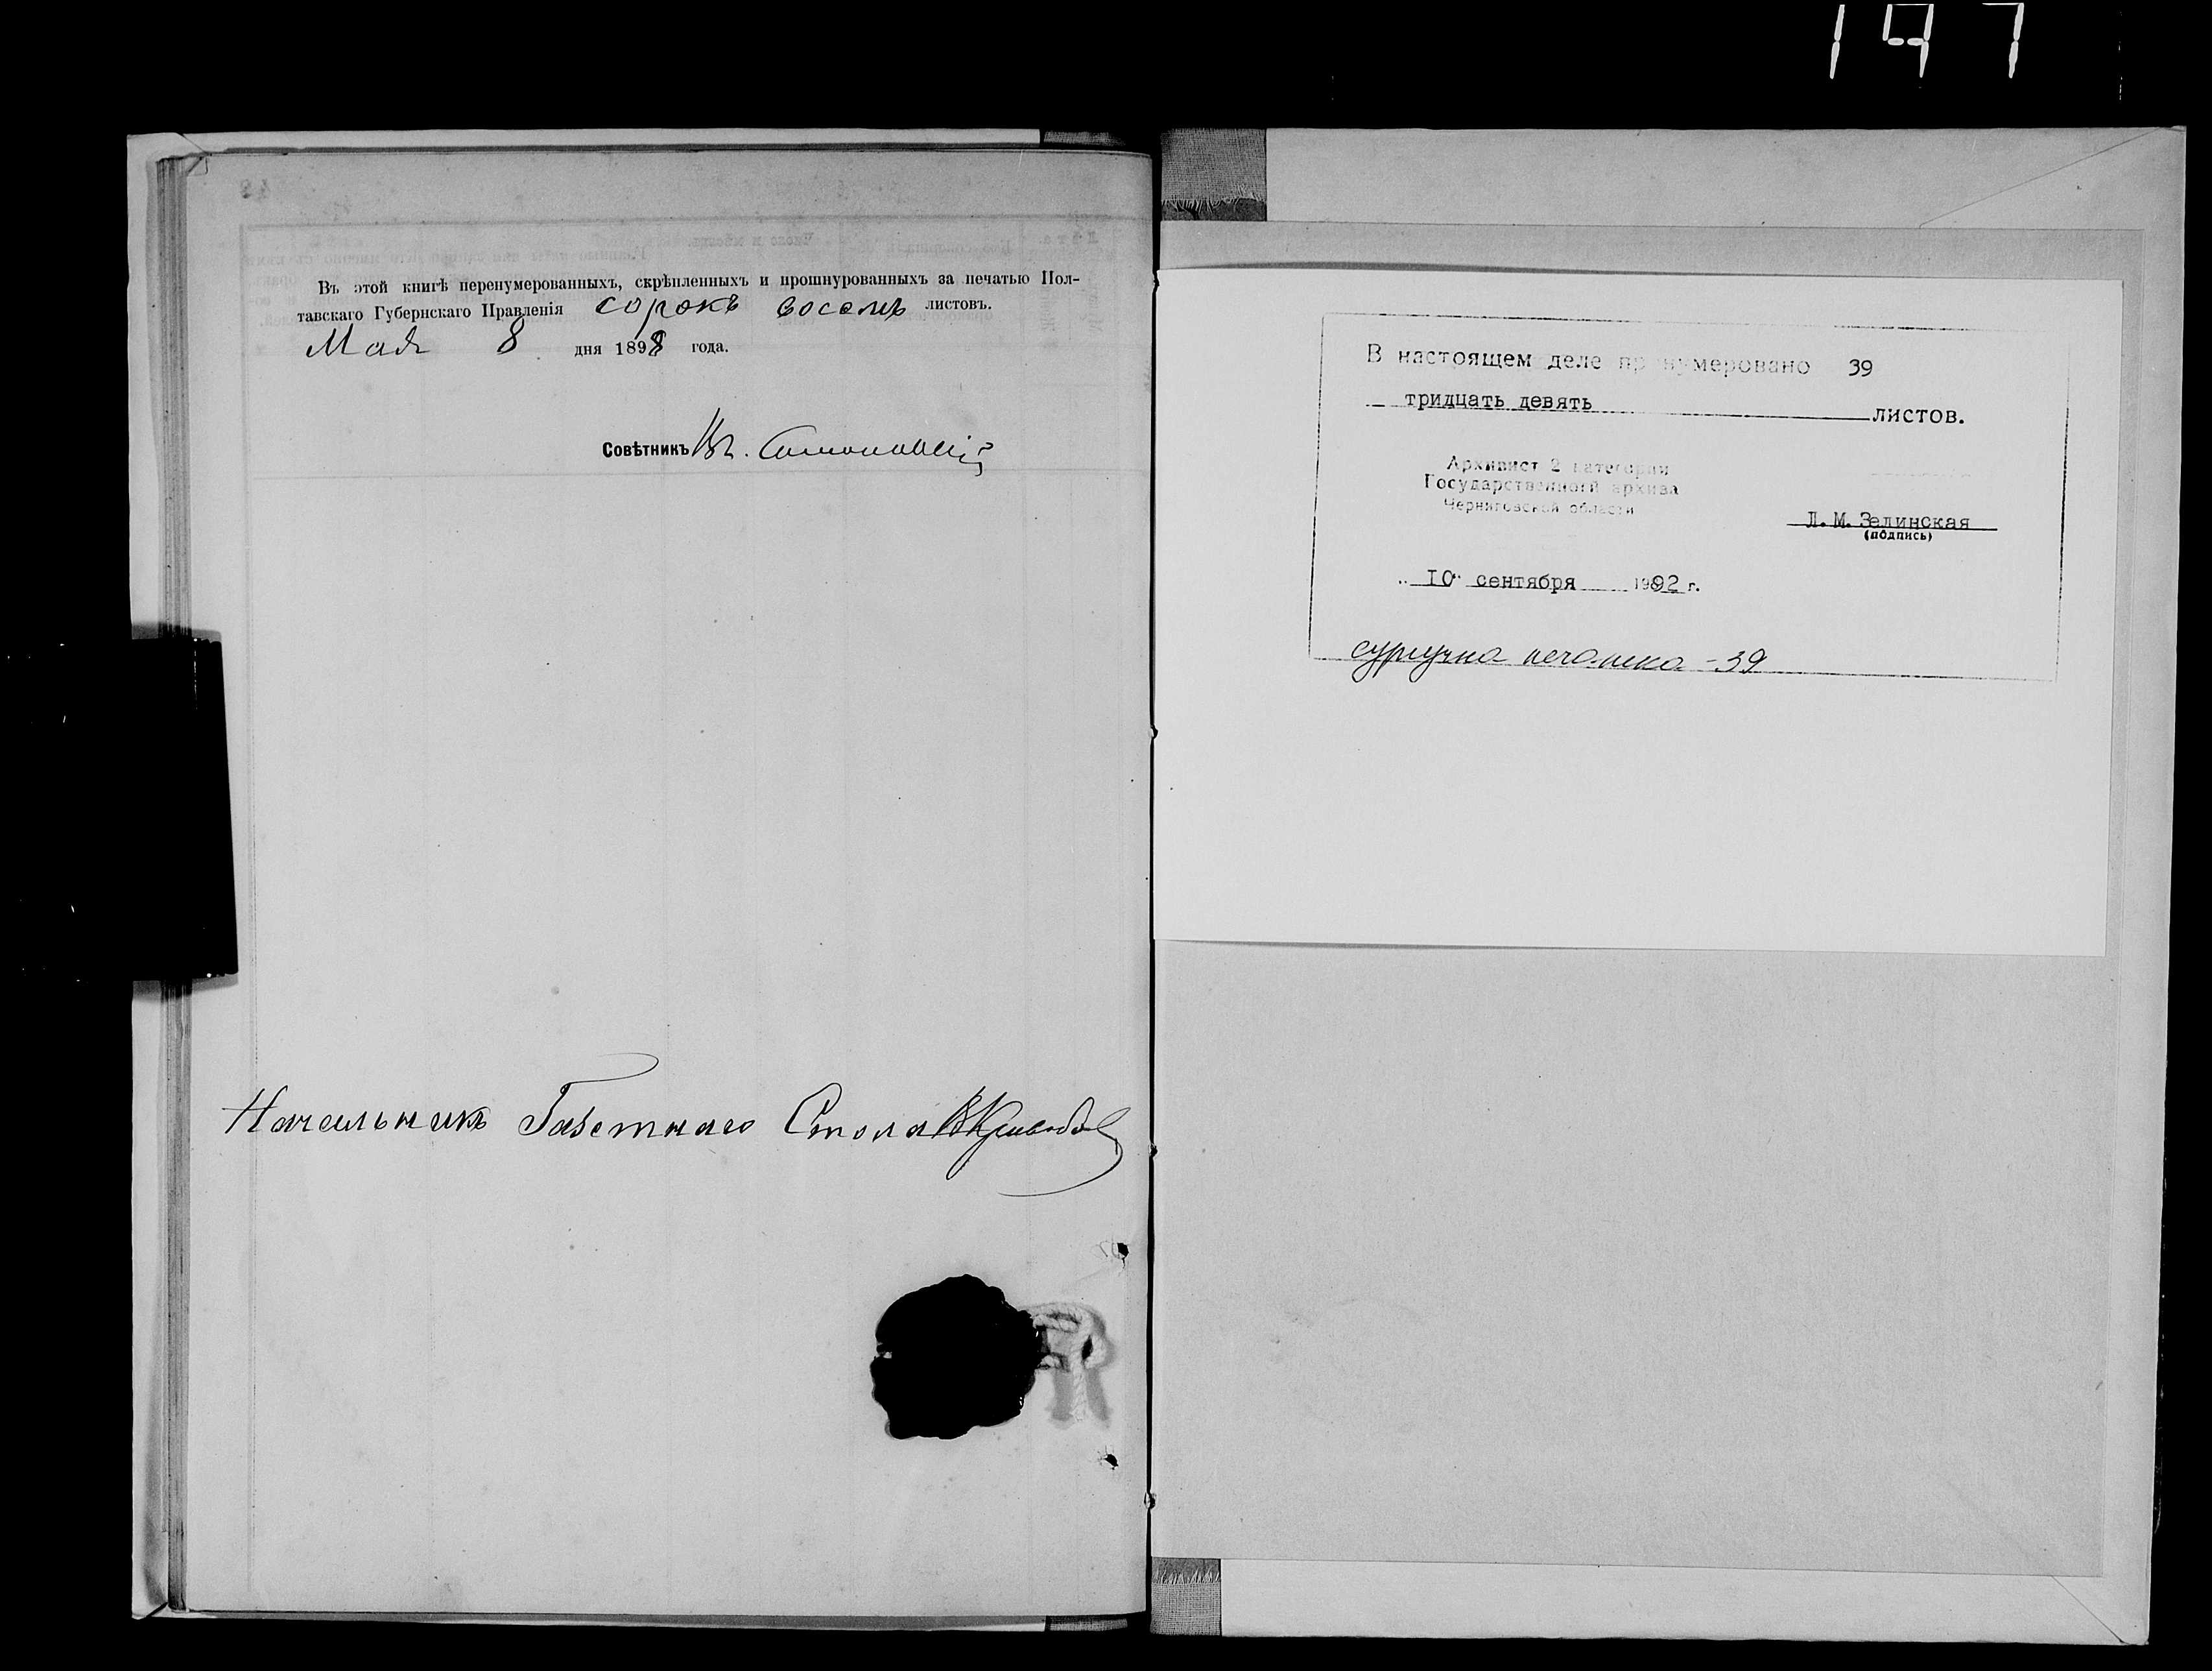 147
Въ этой книгѣ перенумерованныхъ, скрѣпленныхъ и прошнурованныхъ за печатью Пол-
тавскаго Губернскаго Правленія сорокъ восемь листовъ.
Мая 8 дня 1898 года.
Совѣтникъ
Начальникъ Газетнаго Стола
В настоящем деле пронумеровано 39
тридцать девять листов.
Архивист 2 категории
Государственной архива
Черниговской области
Л.М. Зелинская
(подпись)
"10" сентября 1992 г.
сургучна печатка - 39